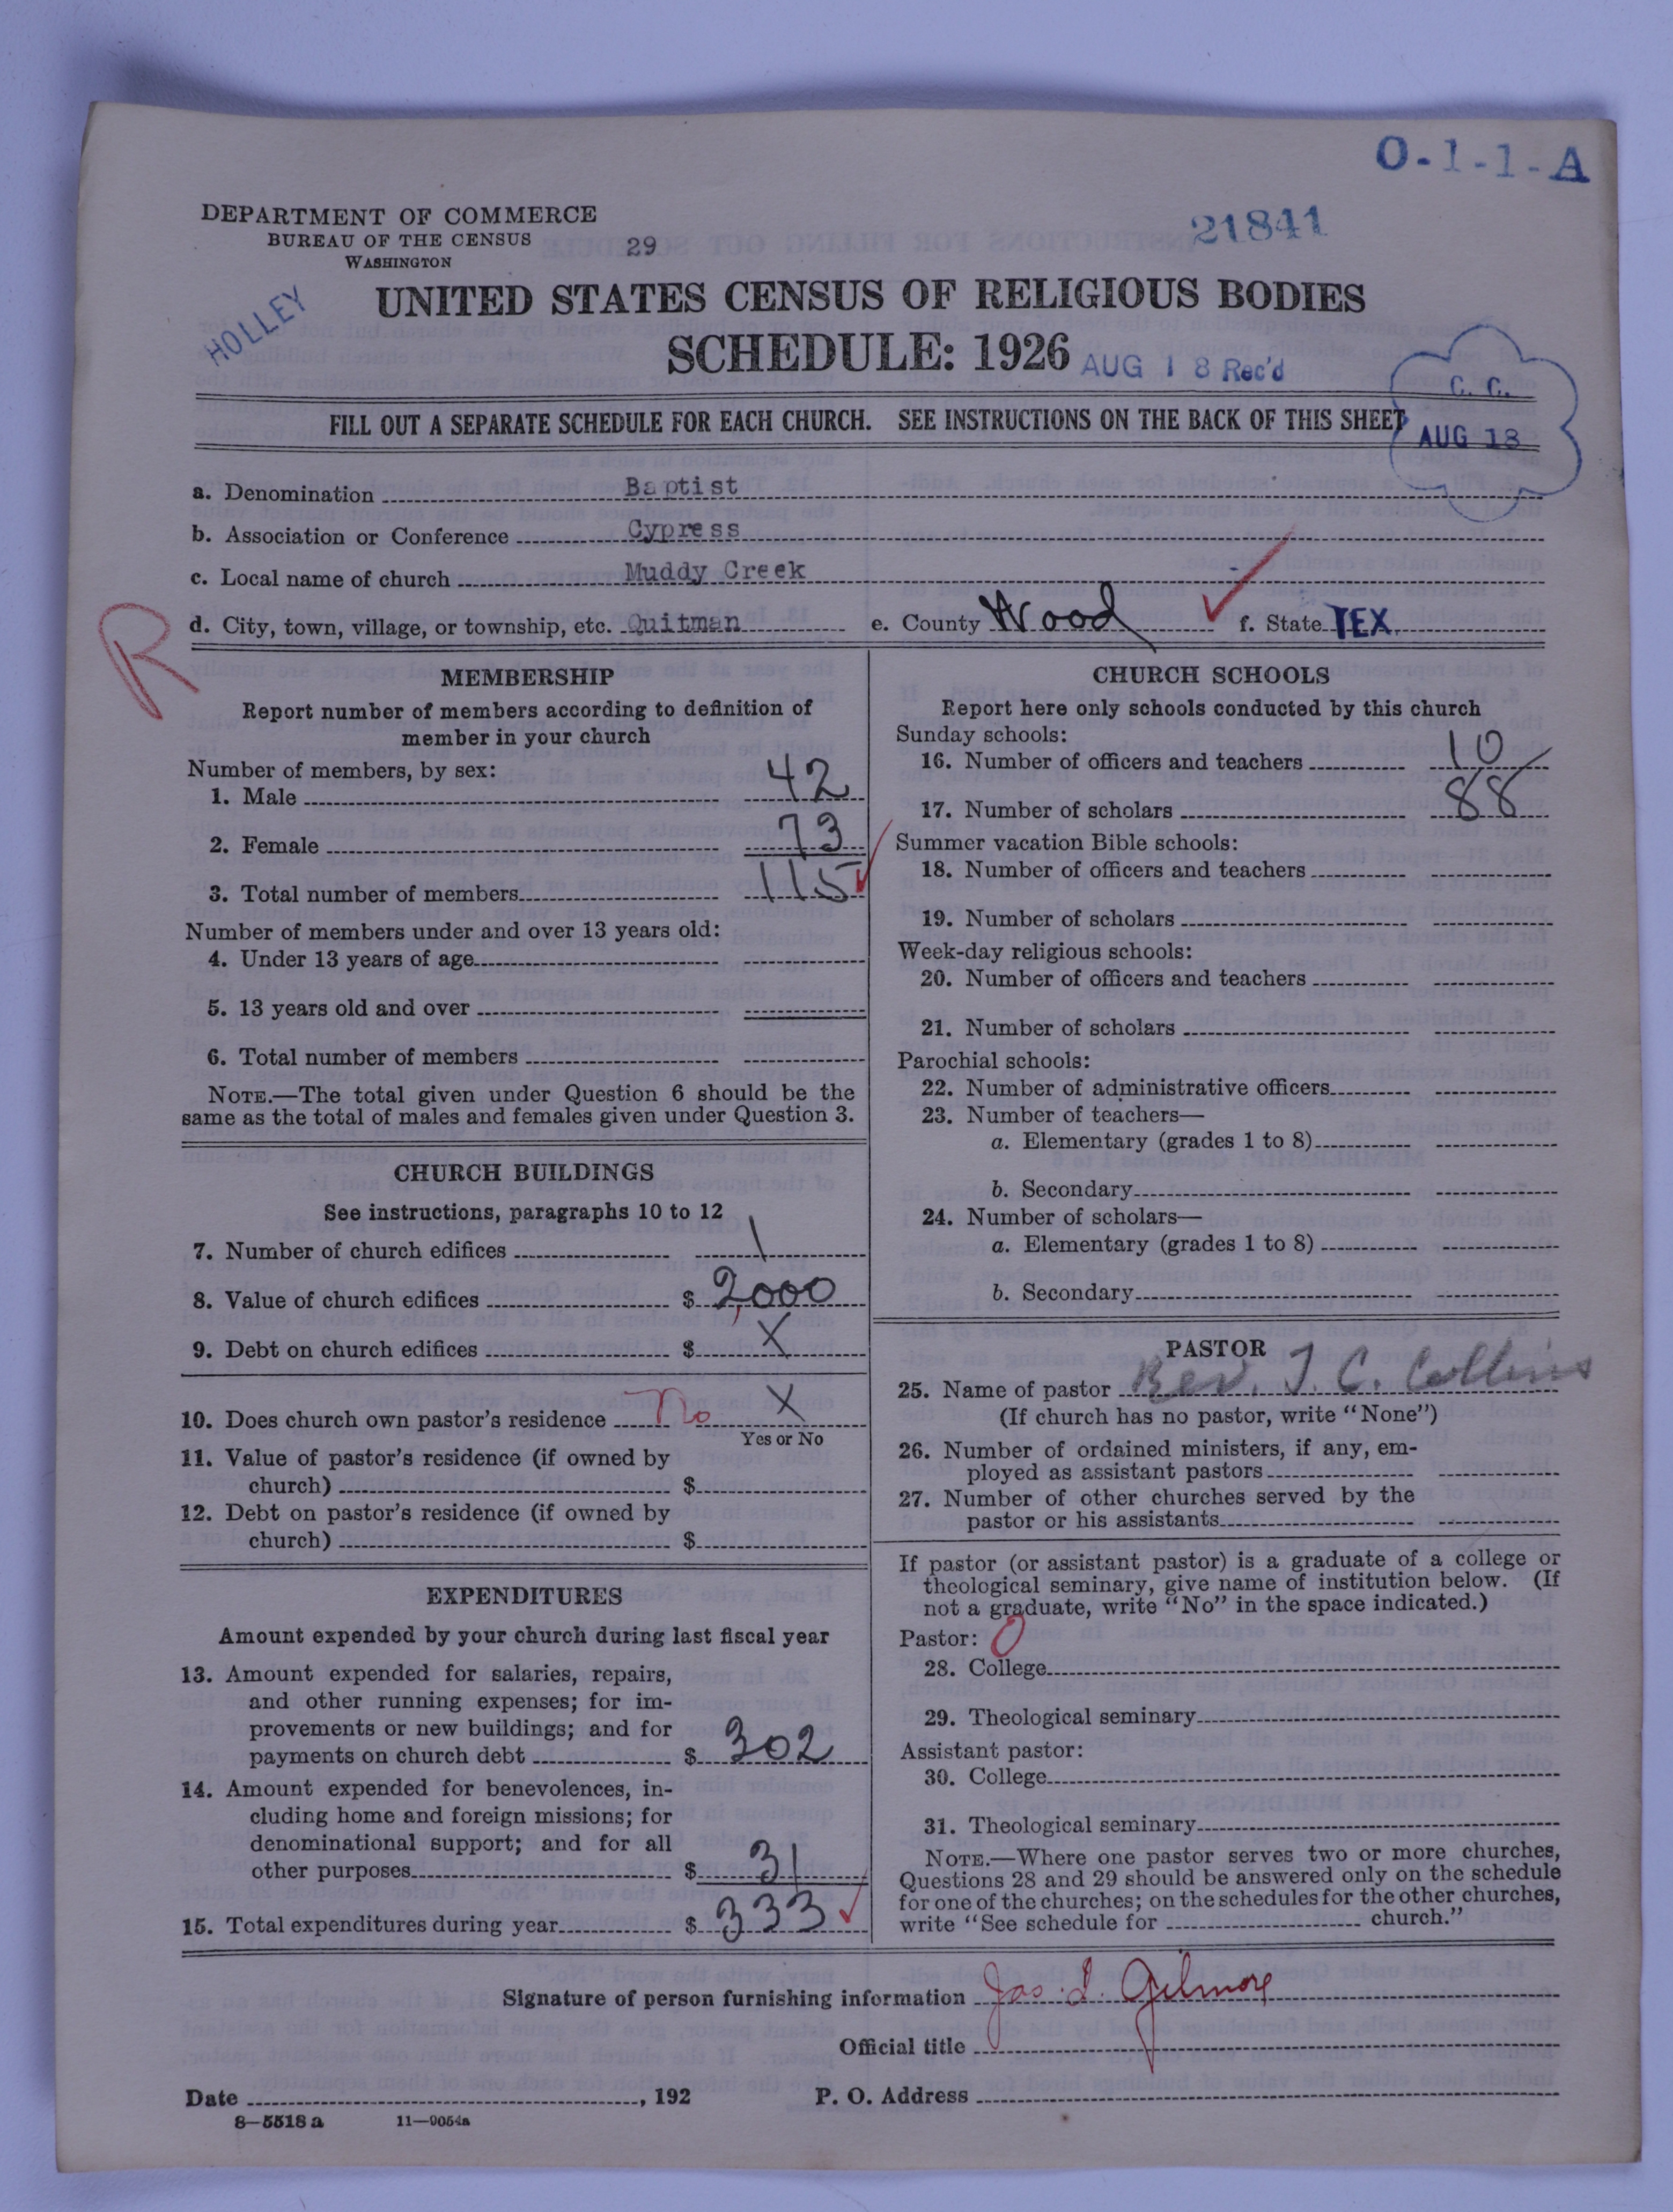 O-1-1-A
DEPARTMENT OF COMMERCE
BUREAU OF THE CENSUS
WASHINGTON
29
21841
HOLLEY
UNITED STATES CENSUS OF RELIGIOUS BODIES
SCHEDULE: 1926
AUG 18 Rec'd
C. C.
AUG 18
FILL OUT A SEPARATE SCHEDULE FOR EACH CHURCH. SEE INSTRUCTIONS ON THE BACK OF THIS SHEET
a. Denomination Baptist
b. Association or Conference Cypress
c. Local name of church Muddy Creek
d. City, town, village, or township, etc. Quitman e. County Wood f. State TEX.
R
MEMBERSHIP
Report number of members according to definition of
member in your church
Number of members, by sex:
1. Male 42
2. Female 73
3. Total number of members 115
Number of members under and over 13 years old:
4. Under 13 years of age
5. 13 years old and over
6. Total number of members
NOTE.—The total given under Question 6 should be the
same as the total of males and females given under Question 3.
CHURCH BUILDINGS
See instructions, paragraphs 10 to 12
7. Number of church edifices 1
8. Value of church edifices $ 2,000
9. Debt on church edifices $ X
10. Does church own pastor's residence no X
Yes or No
11. Value of pastor's residence (if owned by
church) $
12. Debt on pastor's residence (if owned by
church) $
EXPENDITURES
Amount expended by your church during last fiscal year
13. Amount expended for salaries, repairs,
and other running expenses; for im-
provements or new buildings; and for
payments on church debt $ 302
14. Amount expended for benevolences, in-
cluding home and foreign missions; for
denominational support; and for all
other purposes $ 31
15. Total expenditures during year $ 333
CHURCH SCHOOLS
Report here only schools conducted by this church
Sunday schools:
16. Number of officers and teachers 10
17. Number of scholars 88
Summer vacation Bible schools:
18. Number of officers and teachers
19. Number of scholars
Week-day religious schools:
20. Number of officers and teachers
21. Number of scholars
Parochial schools:
22. Number of administrative officers
23. Number of teachers—
a. Elementary (grades 1 to 8)
b. Secondary
24. Number of scholars—
a. Elementary (grades 1 to 8)
b. Secondary
PASTOR
25. Name of pastor Rev. J. C. Collins
(If church has no pastor, write "None")
26. Number of ordained ministers, if any, em-
ployed as assistant pastors
27. Number of other churches served by the
pastor or his assistants
If pastor (or assistant pastor) is a graduate of a college or
theological seminary, give name of institution below. (If
not a graduate, write "No" in the space indicated.)
Pastor: 0
28. College
29. Theological seminary
Assistant pastor:
30. College
31. Theological seminary
NOTE.—Where one pastor serves two or more churches,
Questions 28 and 29 should be answered only on the schedule
for one of the churches; on the schedules for the other churches,
write "See schedule for church."
Signature of person furnishing information Jas. L. Gilmore
Official title
Date , 192 P. O. Address
8—5518a 11—9054a